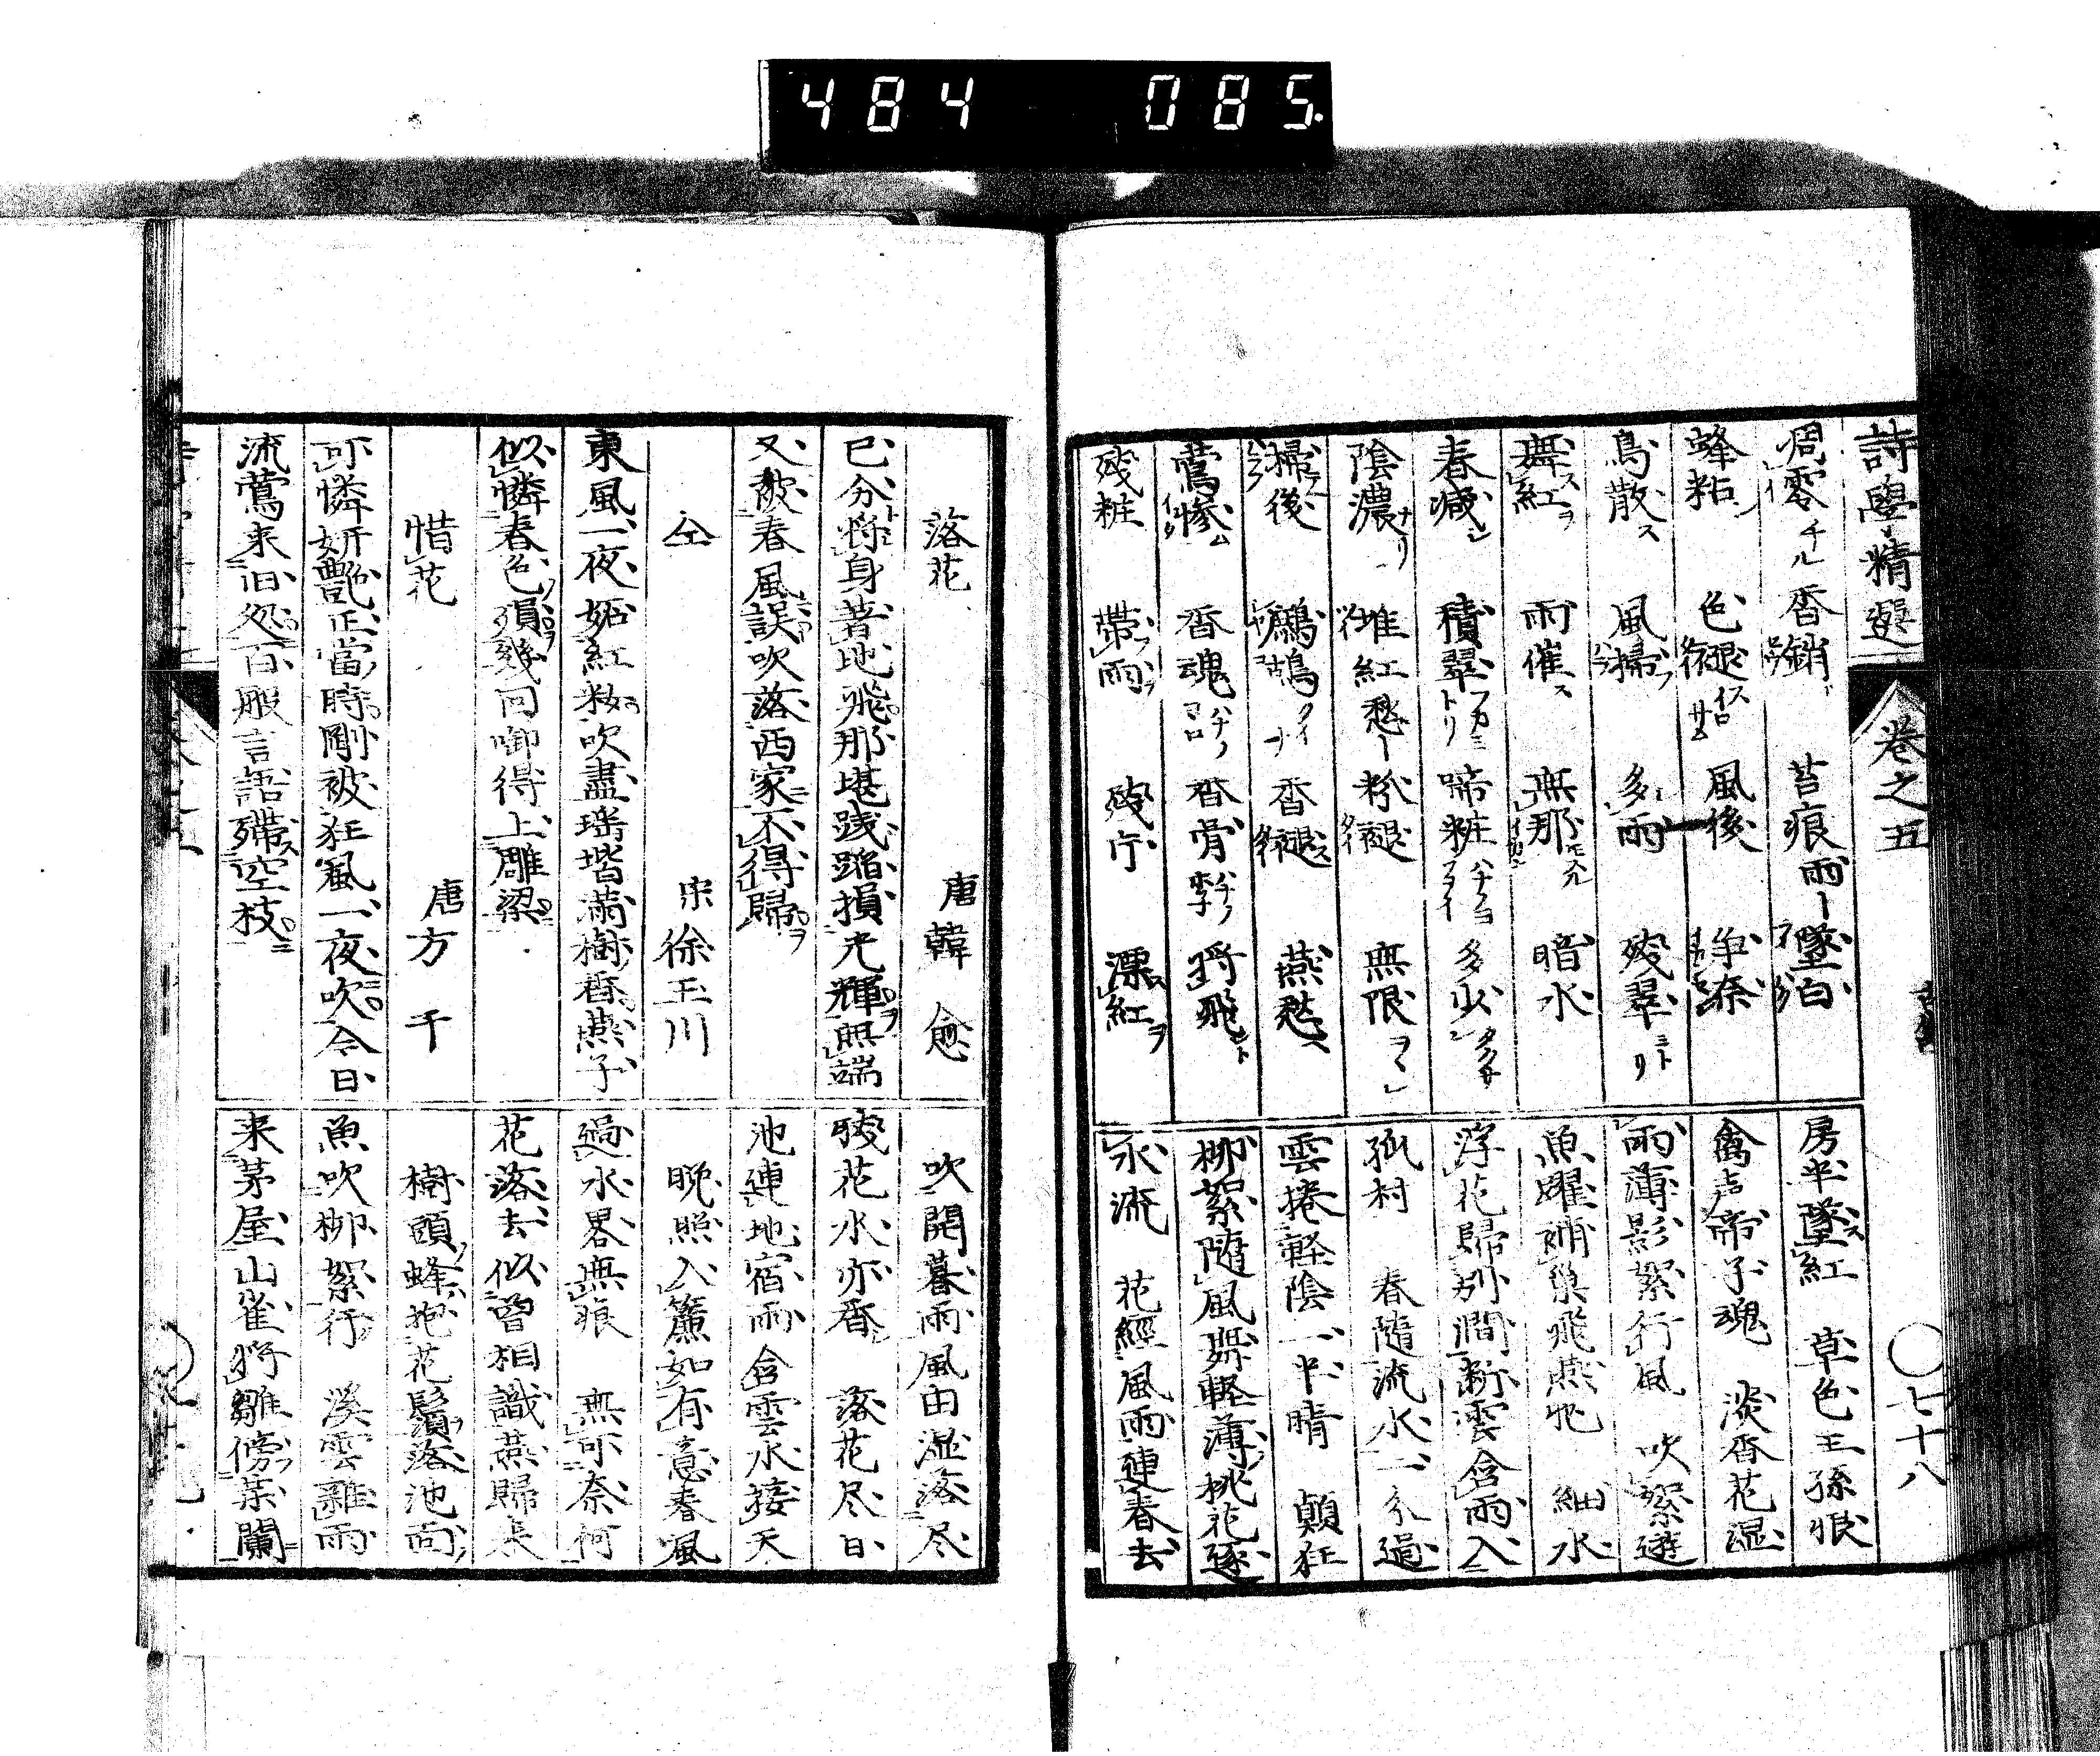 484 085.
詩學精選 卷之五 〇七十八
凋零 香銷 苔痕雨 墜白
蜂粘 色褪 風後 争奈
鳥散 風掃 多雨 残翠
舞紅 雨催 無那 暗水
春減 積翠 啼粧 多少
陰濃 堆紅愁 粉褪 無限
掃後 鷓鴣 香褪 燕愁
鶯惨 香魂 香骨 将飛
残粧 帯雨 残片 漂紅
房半墜紅 草色王孫恨
禽声帝子魂 淡香花湿
雨薄影絮行風 吹絮遊
魚躍補巣飛燕忙 細水
浮花歸別澗断雲含雨入
孤村 春隨流水二分過
雲捲軽陰一半晴 顛狂
柳絮随風舞軽薄桃花逐
水流 花經風雨連春去
落花 唐韓愈
已分将身著地飛那堪践蹈損光輝無端
又被春風誤吹落西家不得歸
仝 宋徐玉川
東風一夜妬紅粧吹盡瑤堦満樹香燕子
似憐春色殞幾回啣得上雕梁
惜花 唐方干
可憐妍艶正當時剛被狂風一夜吹今日
流鶯来旧処百般言語殢空枝
吹開暮雨風由湿落尽
残花水亦香 落花尽日
池連地宿雨含雲水接天
晩照入簾如有意春風
過水畧無痕 無可奈何
花落去似曽相識燕歸来
樹頭蜂抱花鬚落池面
魚吹柳絮行 溪雲雜雨
来茅屋山雀将雛傍薬闌